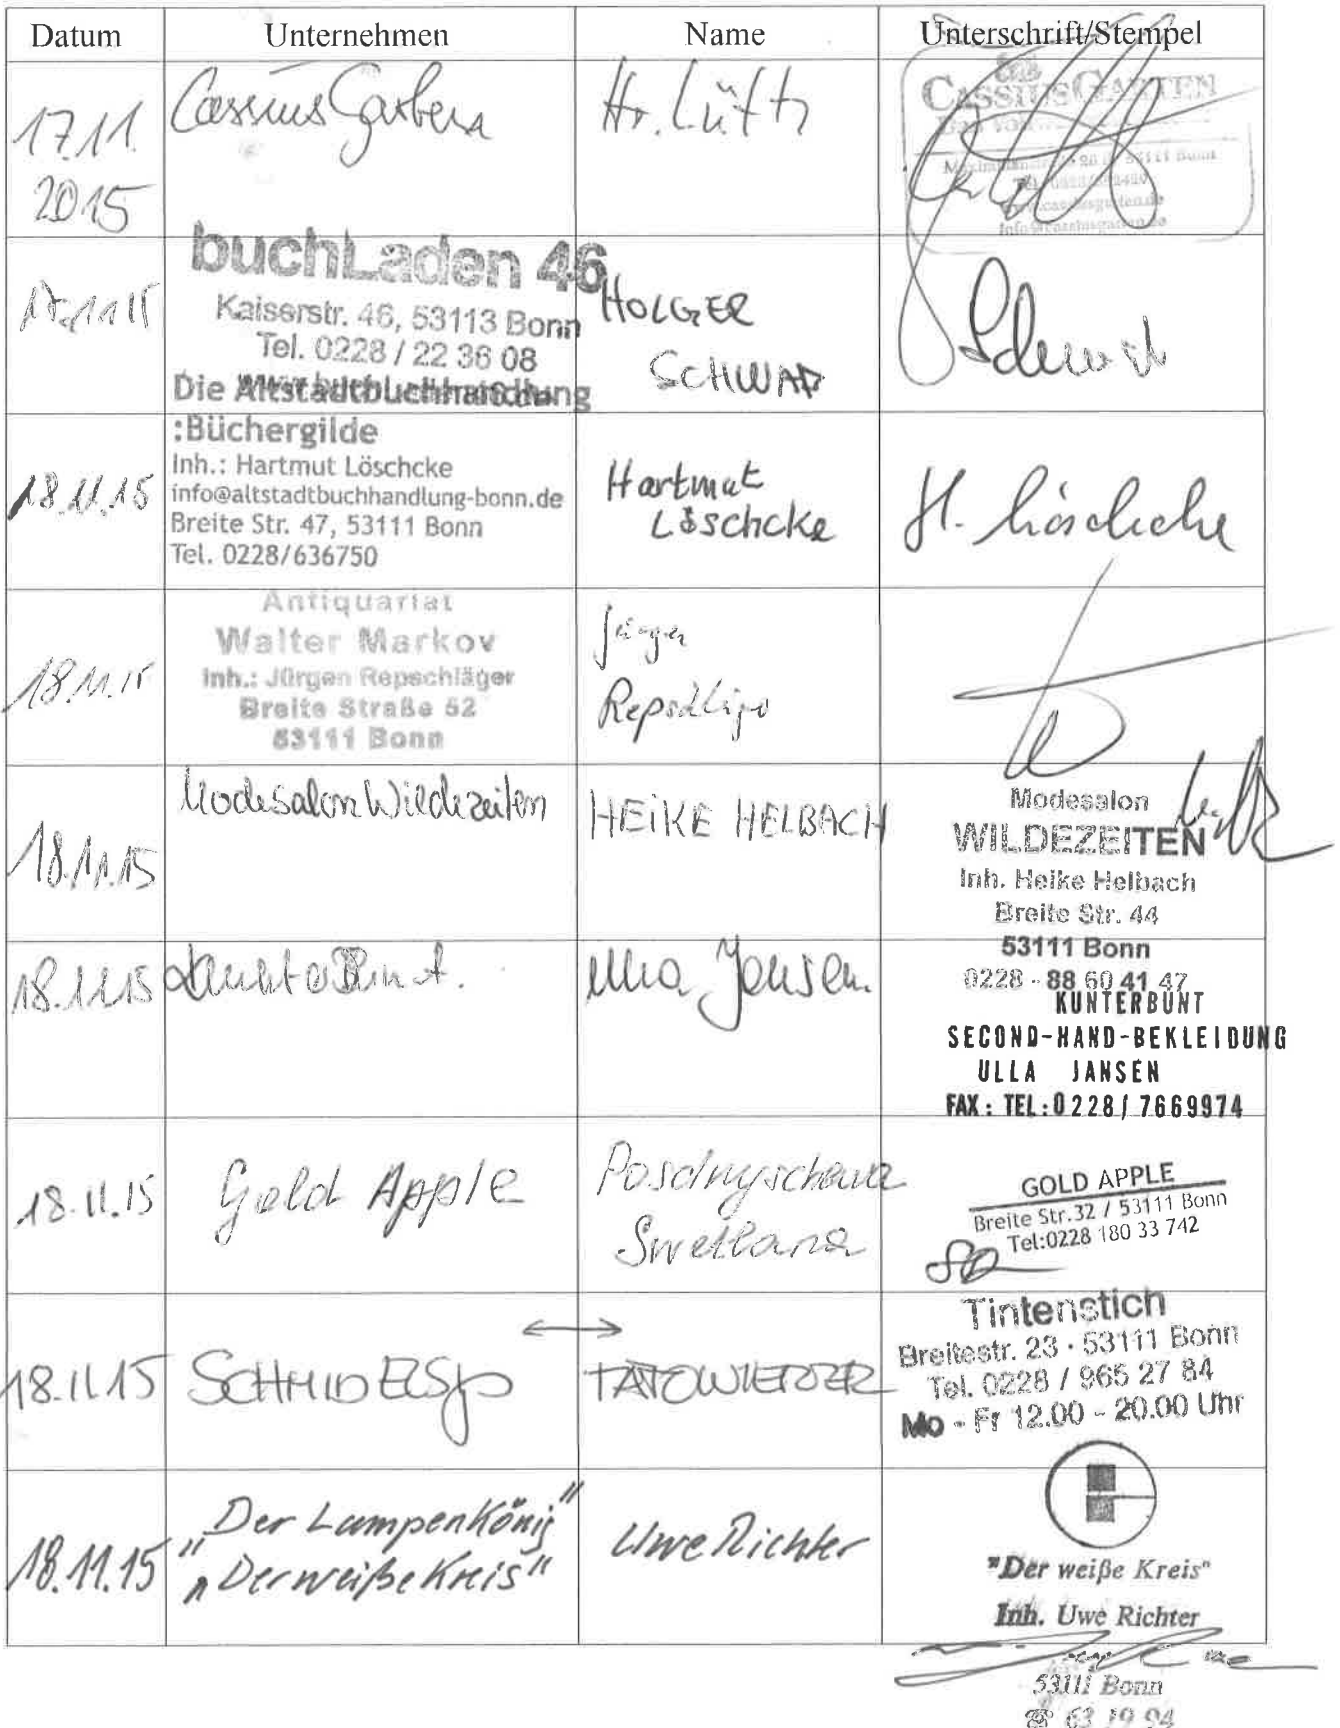 Datum Unternehmen Name Unterschrift/Stempel
17.11.
2015
Cassius Garten
Hr. Lüth
CASSIUSGARTEN
53111 Bonn
www.cassiusgarten.de
info@cassiusgarten.de
17.11.15
buchLaden 46
Kaiserstr. 46, 53113 Bonn
Tel. 0228 / 22 36 08
HOLGER
SCHWAB
Schwab
18.11.15
Die Altstadtbuchhandlung
:Büchergilde
Inh.: Hartmut Löschcke
info@altstadtbuchhandlung-bonn.de
Breite Str. 47, 53111 Bonn
Tel. 0228/636750
Hartmut
Löschcke
H. Löschcke
18.11.15
Antiquariat
Walter Markov
Inh.: Jürgen Repschläger
Breite Straße 52
53111 Bonn
Jürgen
Repschläger
18.11.15
Modesalon Wildezeiten
HEIKE HELBACH
Modesalon
WILDEZEITEN
Inh. Heike Helbach
Breite Str. 44
53111 Bonn
0228 - 88 60 41 47
18.11.15
Kunterbunt.
Ulla Jansen.
KUNTERBUNT
SECOND-HAND-BEKLEIDUNG
ULLA JANSEN
FAX: TEL:0228/7669974
18.11.15
Gold Apple
Posdnyschewa
Swetlana
GOLD APPLE
Breite Str.32 / 53111 Bonn
Tel:0228 180 33 742
18.11.15
TÄTOWIERER
Tintenstich
Breitestr. 23 · 53111 Bonn
Tel. 0228 / 965 27 84
Mo - Fr 12.00 - 20.00 Uhr
18.11.15
"Der Lampenkönig"
"Der weiße Kreis"
Uwe Richter
"Der weiße Kreis"
Inh. Uwe Richter
53111 Bonn
☎ 63 19 94